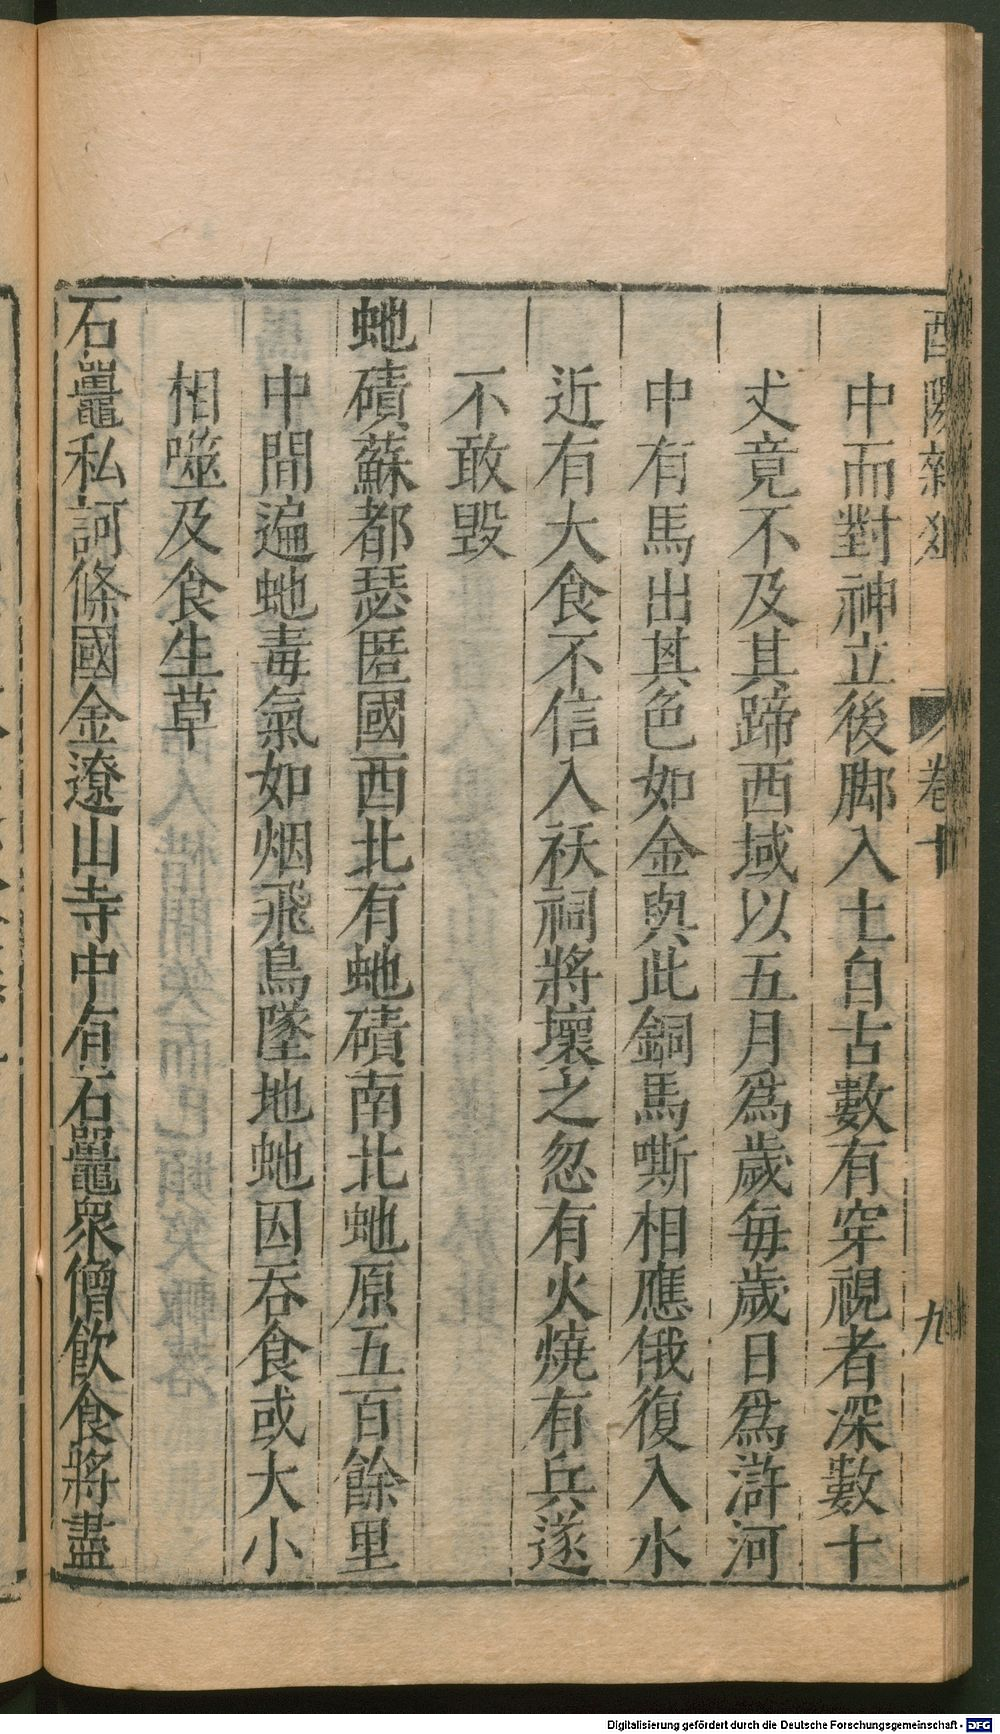 酉陽雜俎 卷十 九
中而對神立後脚入土自古數有穿視者深數十
丈竟不及其蹄西域以五月爲歲每歲日爲滸河
中有馬出其色如金與此銅馬嘶相應俄復入水
近有大食不信入祅祠將壞之忽有火燒有兵遂
不敢毀
虵磧蘇都瑟匿國西北有虵磧南北虵原五百餘里
中間遍虵毒氣如烟飛鳥墜地虵因吞食或大小
相噬及食生草
石鼉私訶條國金遼山寺中有石鼉衆僧飲食將盡
Digitalisierung gefördert durch die Deutsche Forschungsgemeinschaft - DFG